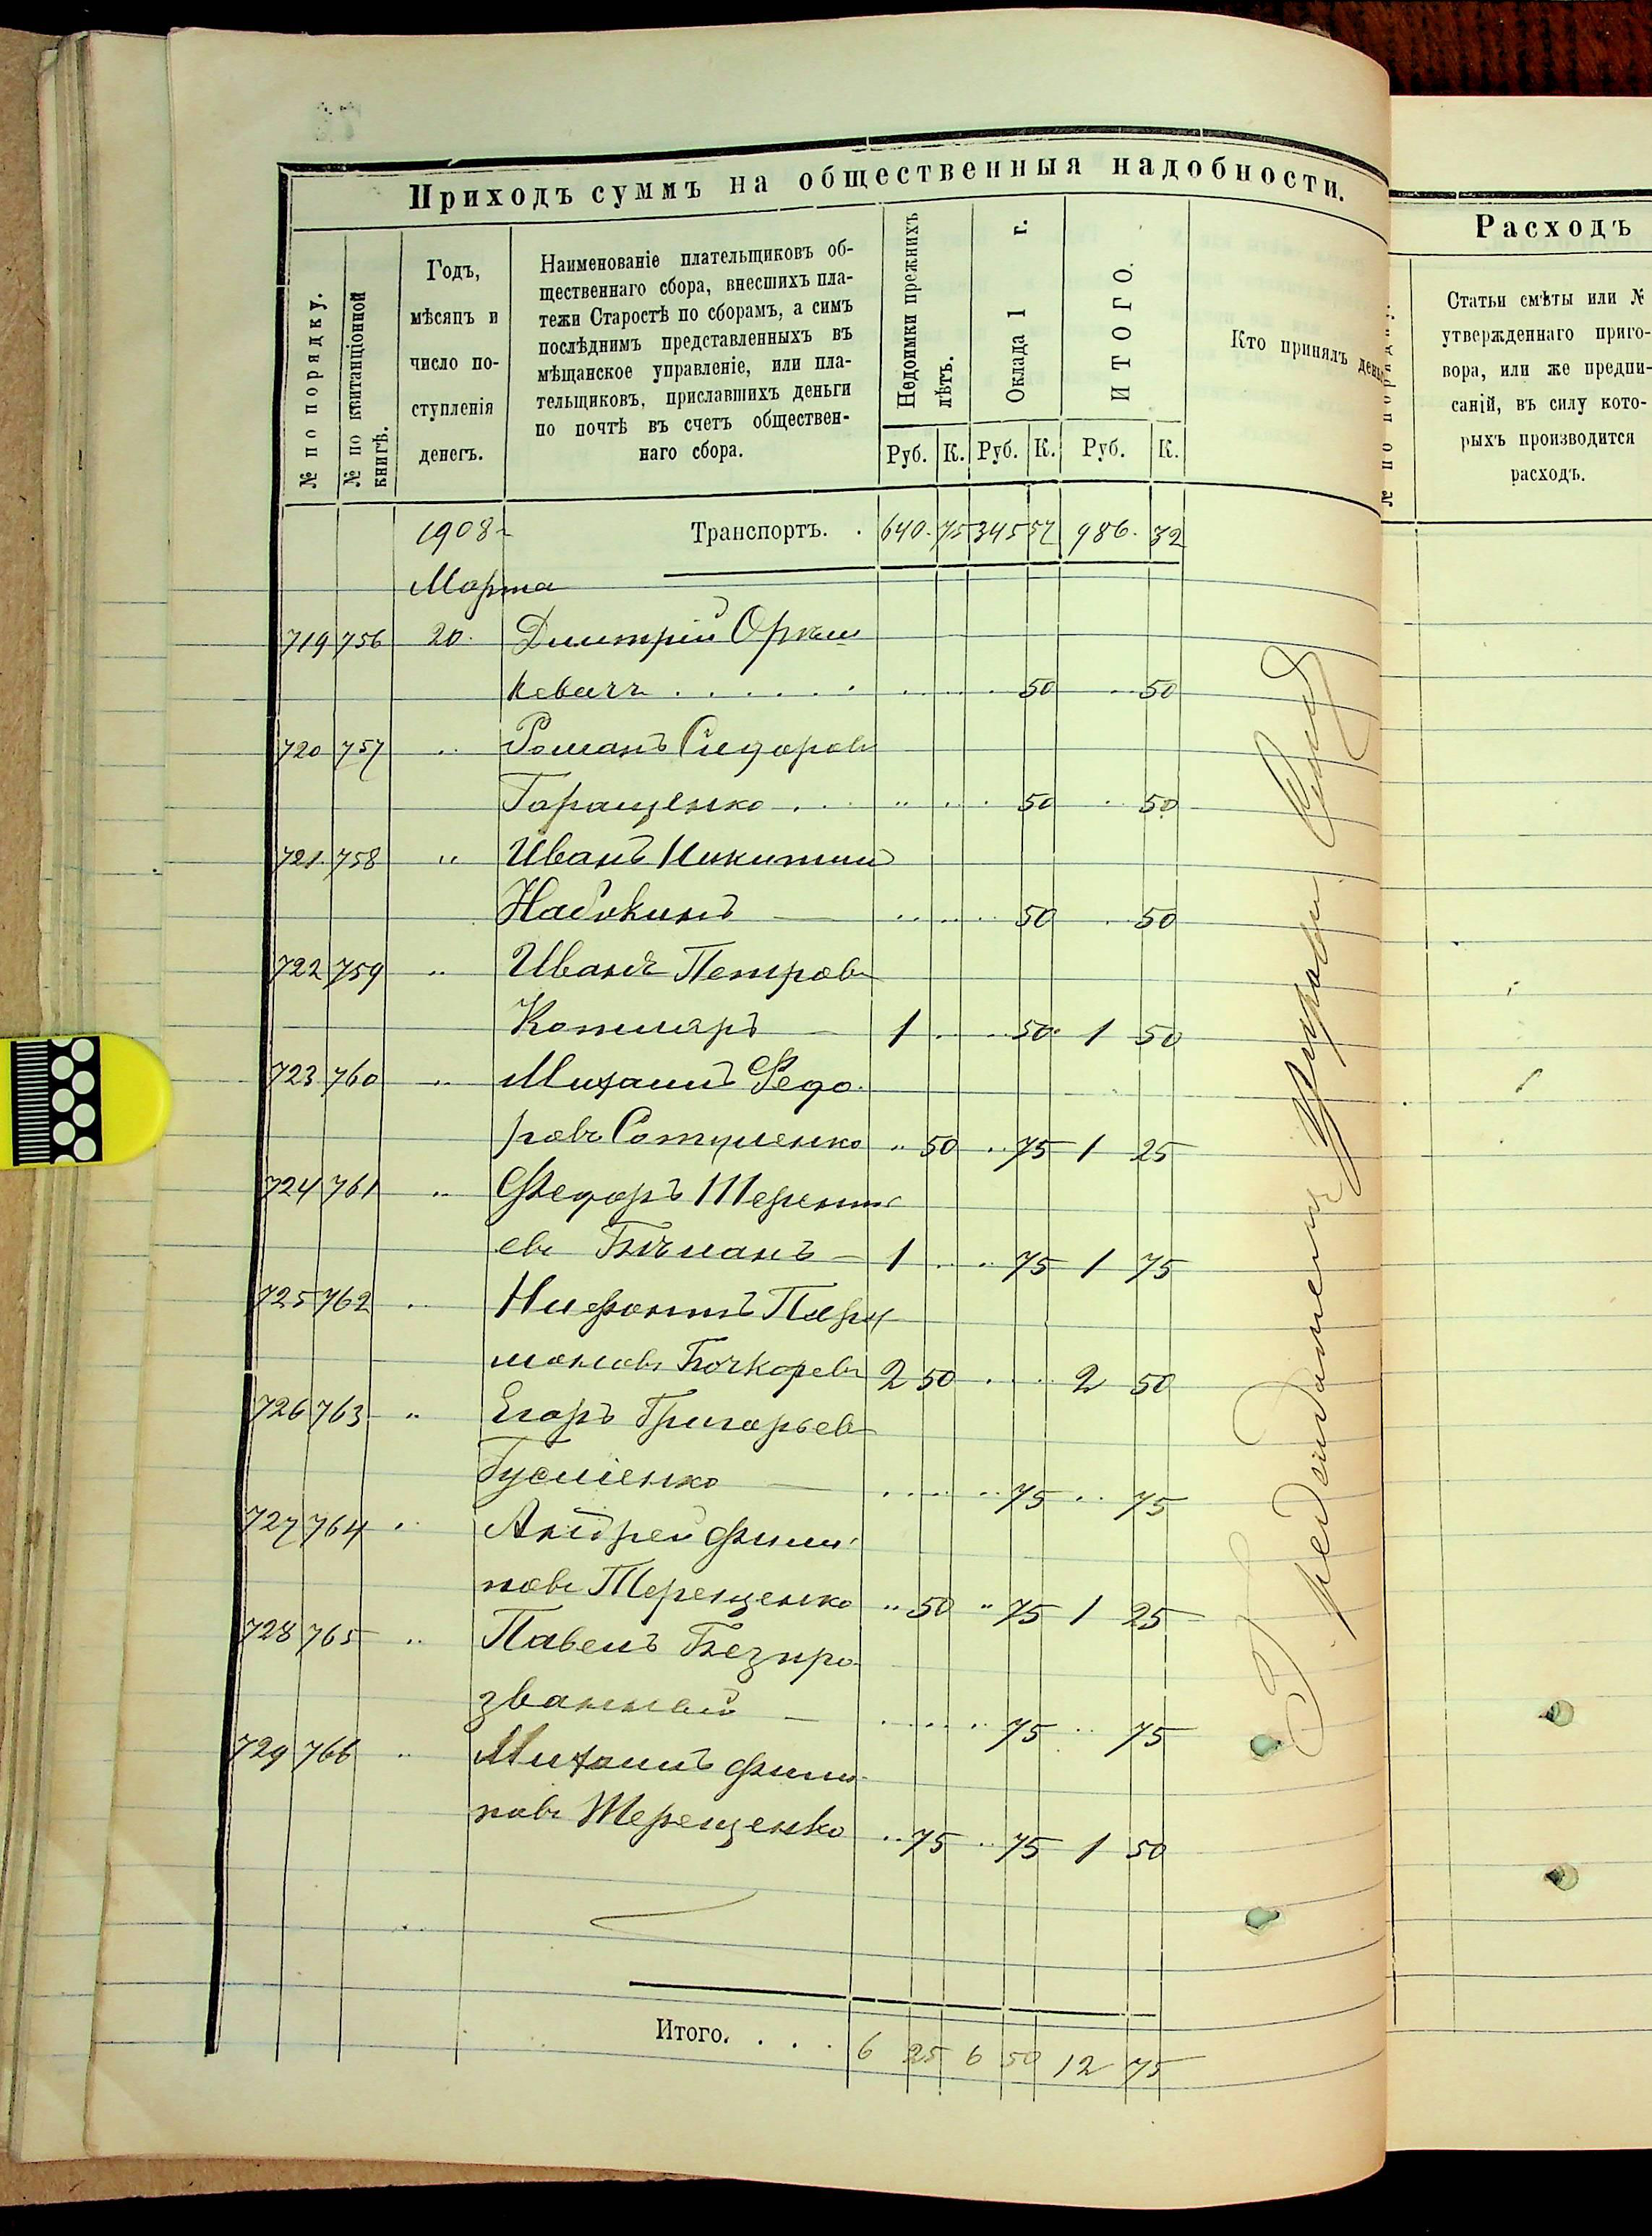 Приходъ суммъ на общественныя надобности.
№ по порядку.
№ по квитанціонной книгѣ.
Годъ,
мѣсяцъ и
число по-
ступленія
денегъ.
Наименованіе плательщиковъ об-
щественнаго сбора, внесшихъ пла-
тежи Старостѣ по сборамъ, а симъ
послѣднимъ представленныхъ въ
мѣщанское управленіе, или пла-
тельщиковъ, приславшихъ деньги
по почтѣ въ счетъ обществен-
наго сбора.
Недоимки прежнихъ лѣтъ.
Оклада 1 г.
ИТОГО.
Кто принялъ
Руб. К. Руб. К. Руб. К.
1908 Транспортъ. . 640. 75 345 57 986. 32
Марта
719 756 20. Дмитрій
кевичъ . . . . . . 50 50
720 757 " Романъ Сидоровъ
Таращенко . . . 50 50
721. 758 " Иванъ Никитинъ
Набокинъ — 50 50
722 759 " Иванъ Петровъ
Котляръ — 1 50 1 50
723 760 " Михаилъ Федо-
ровъ " 50 75 1 25
724 761 " Федоръ Теренть
евъ — 1 75 1 75
725 762 " Нифонтъ
Бочкаревъ 2 50 2 50
726 763 " Егоръ Григорьевъ
— 75 75
727 764 " Андрей Филип-
повъ Терещенко " 50 " 75 1 25
728 765 " Павелъ Безпро-
званный — 75 75
729 766 " Михаилъ Филип-
повъ Терещенко " 75 75 1 50
Итого. . . . 6 25 6 50 12 75
Расходъ
№ по порядку.
Статьи смѣты или №
утвержденнаго приго-
вора, или же предпи-
саній, въ силу кото-
рыхъ производится
расходъ.